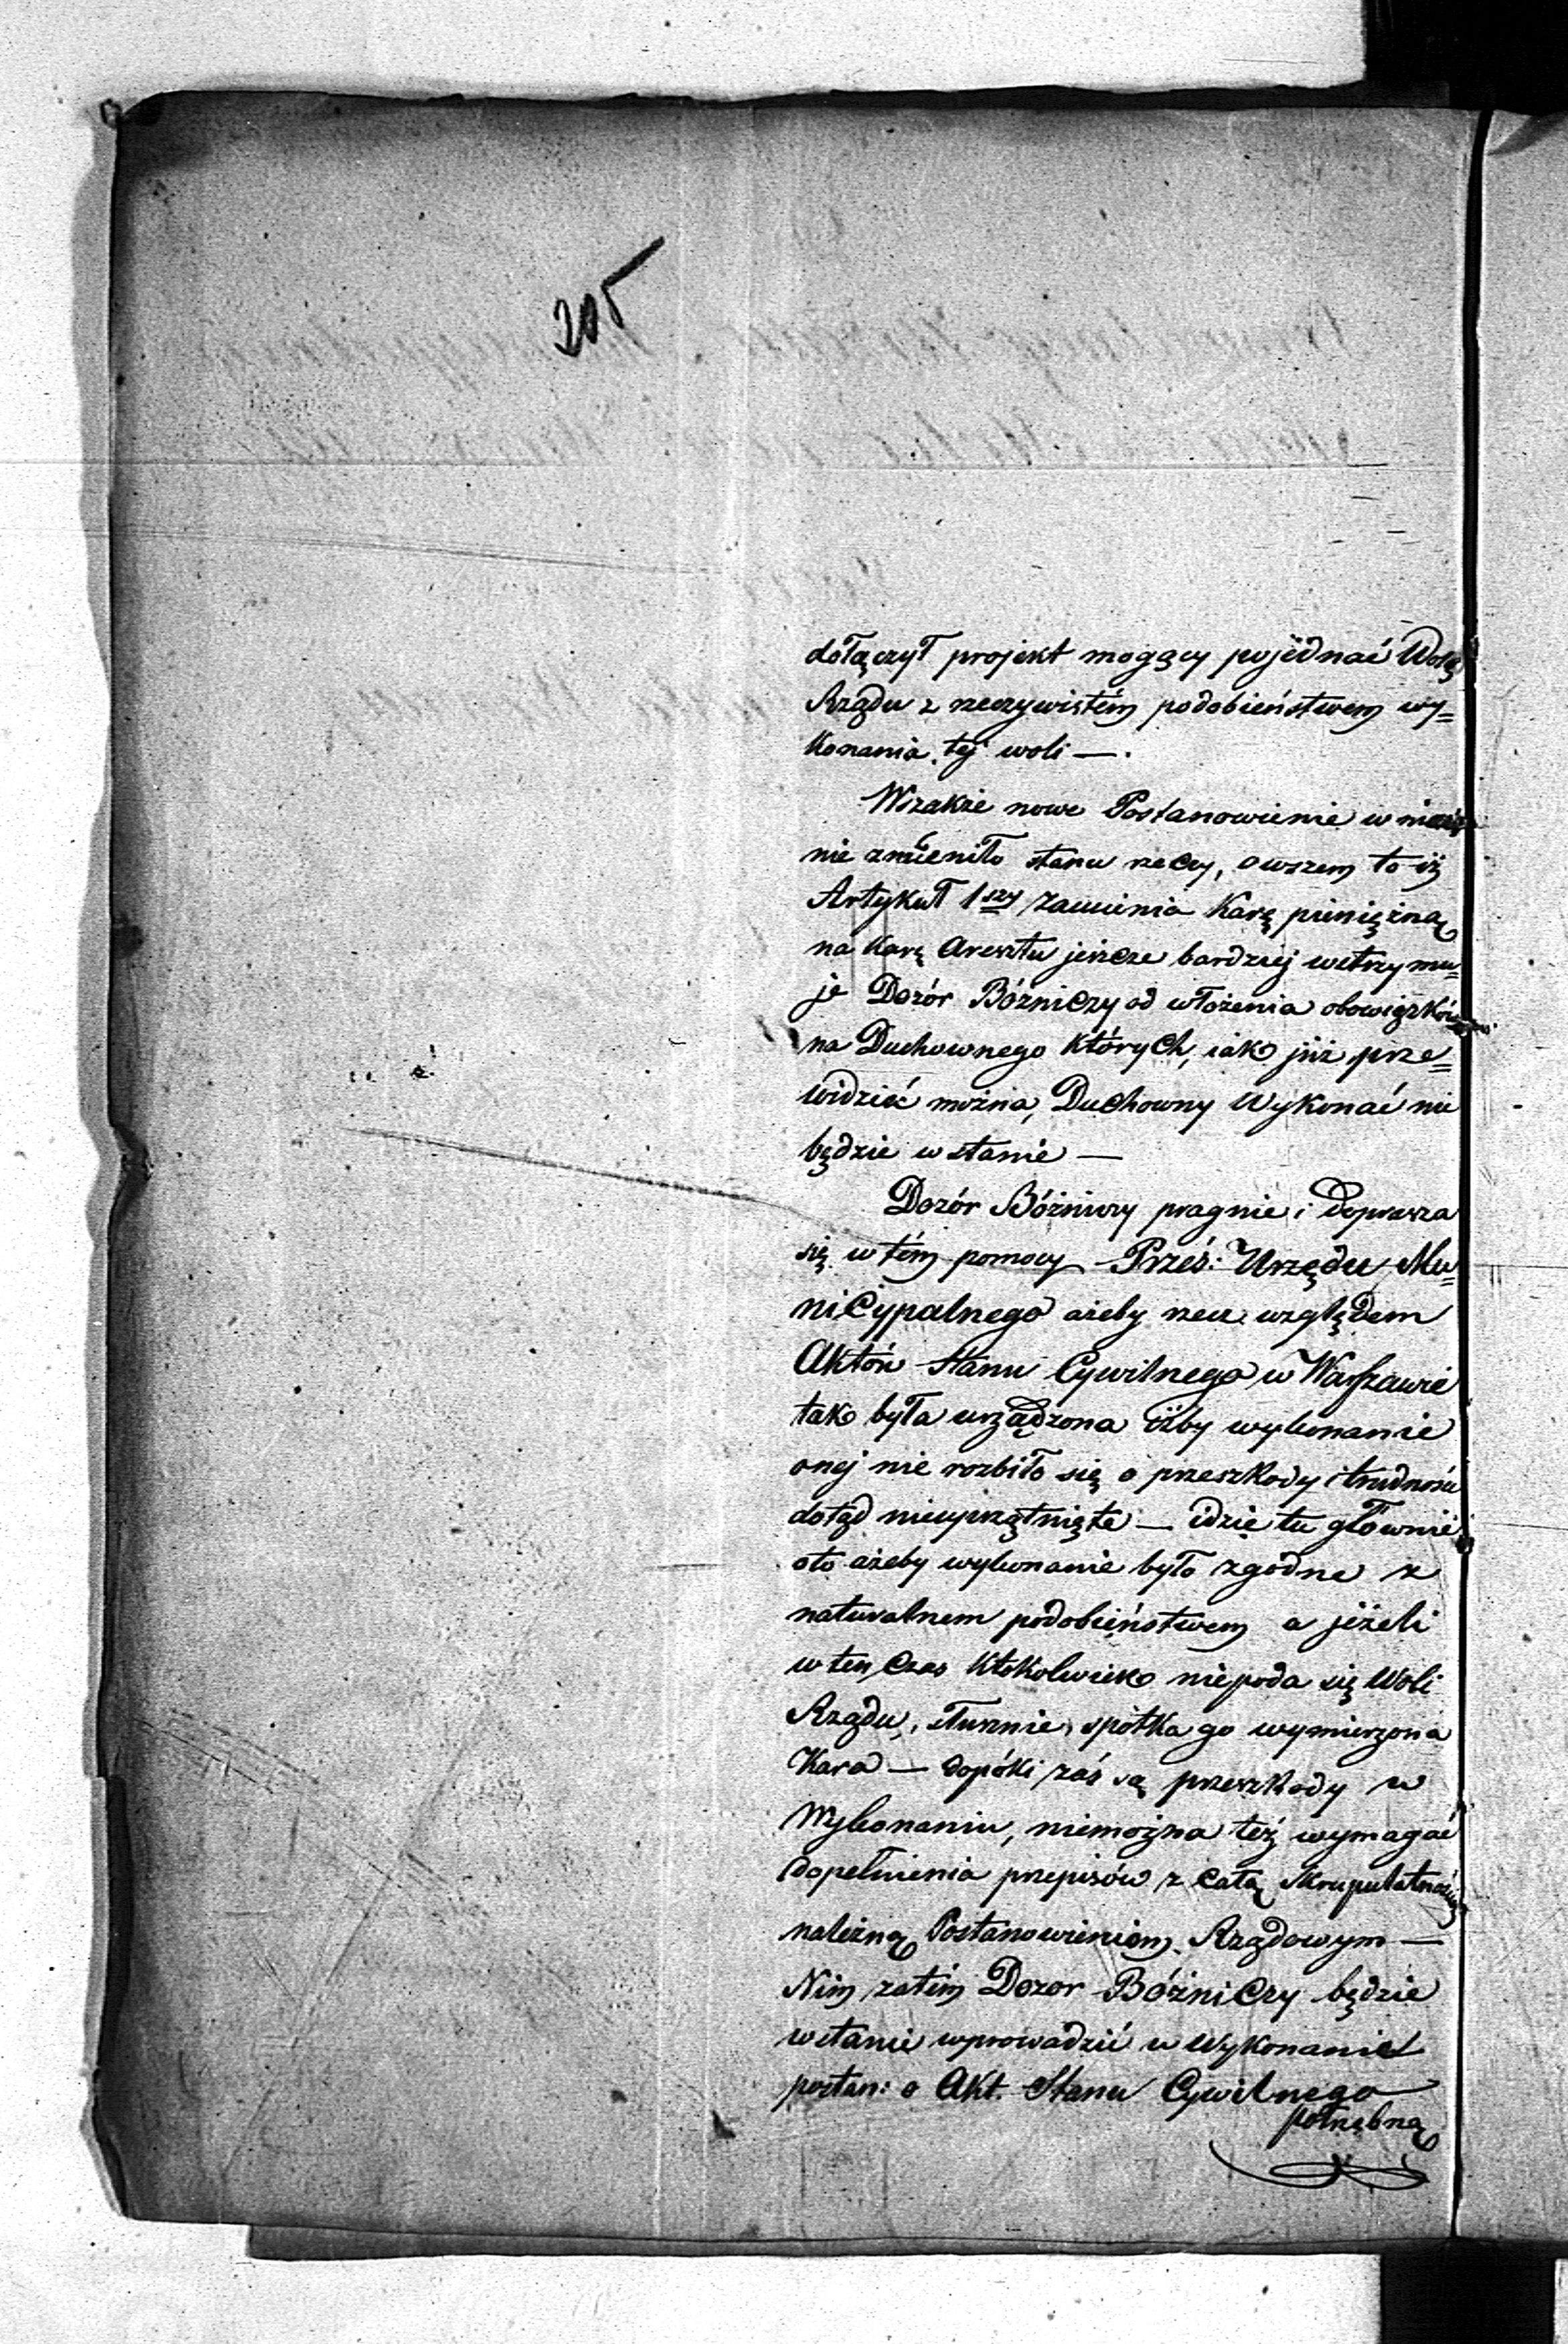 205
dołączył projekt mogący pojednać Wolę
Rządu z rzeczywistém podobieństwem wy=
konania tej woli —.
Wszakże nowe Postanowienie w niczém
nie zmieniło stanu rzeczy, owszem to iż
Artykuł 1szy zamienia karę pieniężną
na karę Aresztu jeszcze bardziej wstrzymu=
je Dozór Bóżniczy od włożenia obowiązków
na Duchownego których, iak już prze=
widzieć można, Duchowny Wykonać nie
będzie w stanie —
Dozór Bóżniczy pragnie i doprasza
się w tém pomocy Prześ: Urzędu Mu=
nicypalnego ażeby rzecz względem
Aktów Stanu Cywilnego w Warszawie
tak była urządzona iżby wykonanie
onej nie rozbiło się o przeszkody i trudności
dotąd nieuprzątnięte — idzie tu głownie
oto ażeby wykonanie było zgodne z
naturalnem podobieństwem a jeżeli
w ten czas ktokolwiek niepoda się Woli
Rządu, słusznie spotka go wymierzona
Kara — dopóki zaś są przeszkody w
Wykonaniu, niemożna też wymagać
dopełnienia przepisów z całą skrupulatnością
należną Postanowieniom Rządowym —
Nim zatém Dozor Bóżniczy będzie
wstanie wprowadzić w Wykonanie
postan: o Akt. Stanu Cywilnego
potrzebną